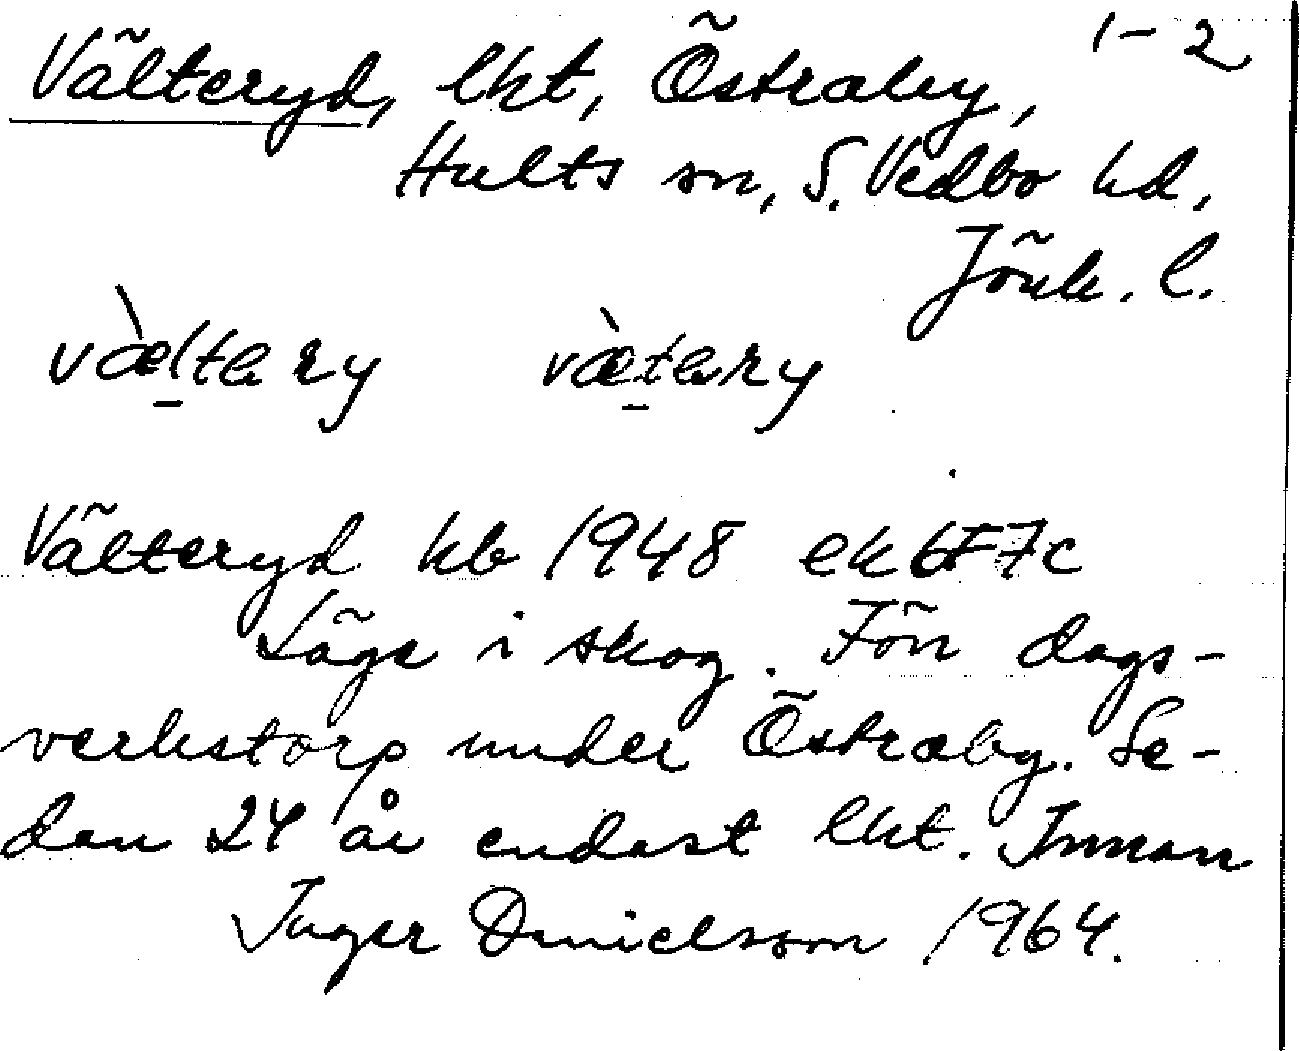 1-2
Välteryd, lht, Östraby,
Hults sn, S. Vedbo hd,
Jönk. l.
væ̀ltery væ̀tery
Välteryd kb 1948 ek 6F7c
Läge i skog. Förr dags-
verkstorp under Östraby. Se-
dan 24 år endast lht. Innan
Inger Danielsson 1964.